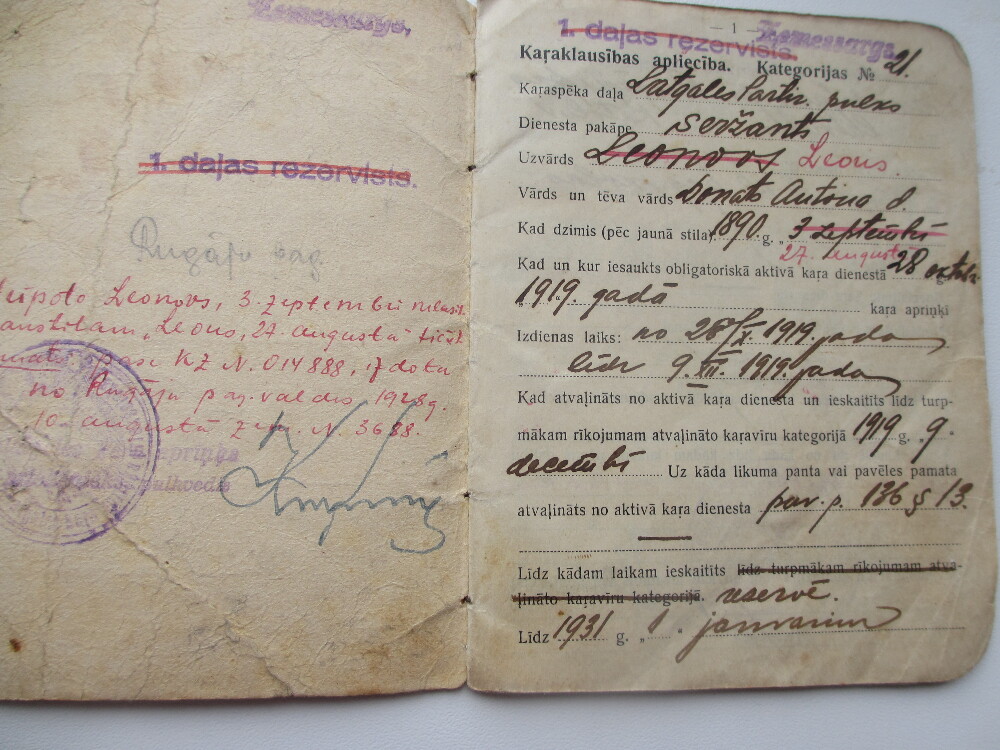 Zemessargs,
1. daļas rezervists.
Rugāju pag.
Leonovs, 3. septembrī
"Leons, 27. augustā"
pasi KZ N. 014888, izdota
no Rugāju pag. valdes 1928 g.
10. augustā zem N. 3688.
apriņķa
pulkvedis
— 1 —
1. daļas rezervists.
Zemessargs
Kaŗaklausības apliecība. Kategorijas № 21.
Kaŗaspēka daļa Latgales Partiz. pulks
Dienesta pakāpe seržants
Uzvārds Leonovs Leons.
Vārds un tēva vārds Donats Antona d.
Kad dzimis (pēc jaunā stila) 1890. g. „ 3 septembrī
27. augustā
Kad un kur iesaukts obligatoriskā aktivā kaŗa dienestā 28 oktobrī
1919. gadā kaŗa apriņķī
Izdienas laiks: no 28/X. 1919. gada
līdz 9. XII. 1919. gada
Kad atvaļināts no aktivā kaŗa dienesta un ieskaitīts līdz turp-
mākam rīkojumam atvaļināto kaŗavīru kategorijā 1919 g. 9.
decembrī Uz kāda likuma panta vai pavēles pamata
atvaļināts no aktivā kaŗa dienesta pav. p. 136 § 13.
Līdz kādam laikam ieskaitīts līdz turpmākam rīkojumam atva-
ļināto kaŗavīru kategorijā. reservē.
Līdz 1931 g. „ 1. janvarim